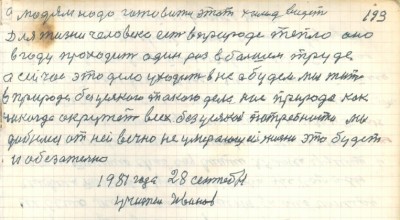 а людям надо готовить этот холод видит 193
Для жизни человека ест в природе тепло оно
в году проходит один раз в большем труде
а сейчас это дело уходит в не будем мы жить
в природе без всякого такого дела нас природа как
никогда окружает всех без всякой потребности мы
добьемся от ней вечно не умирающей жизни это будет
и обезательно
1981 года 28 сентебря
учител Иванов